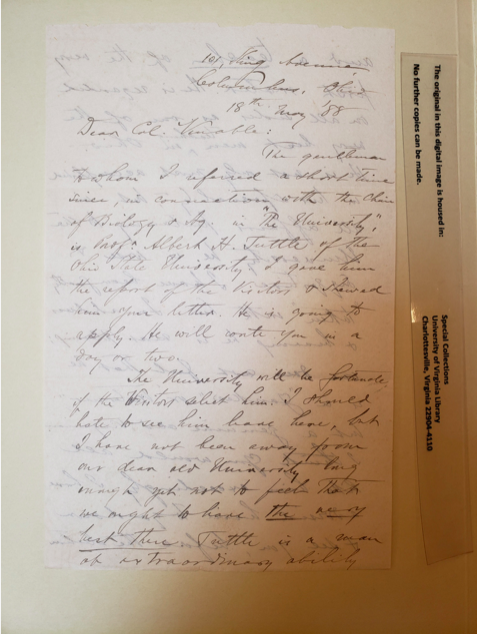 101, King Avenue,
Columbus, Ohio
18th May '88
Dear Col. Venable:
The gentleman
to whom I referred a short time
since, in connection with the Chair
of Biology & Ag. in "The University",
is Prof: Albert H. Tuttle of the
Ohio State University. I gave him
the report of the Visitors & showed
him your letter. He is going to
apply. He will write you in a
day or two.
The University will be fortunate
if the Visitors select him. I should
hate to see him leave here, but
I have not been away from
our dear old University long
enough yet not to feel that
we ought to have the very
best there. Tuttle is a man
of extraordinary ability
The original in this digital image is housed in:
No further copies can be made.
Special Collections
University of Virginia Library
Charlottesville, Virginia 22904-4110